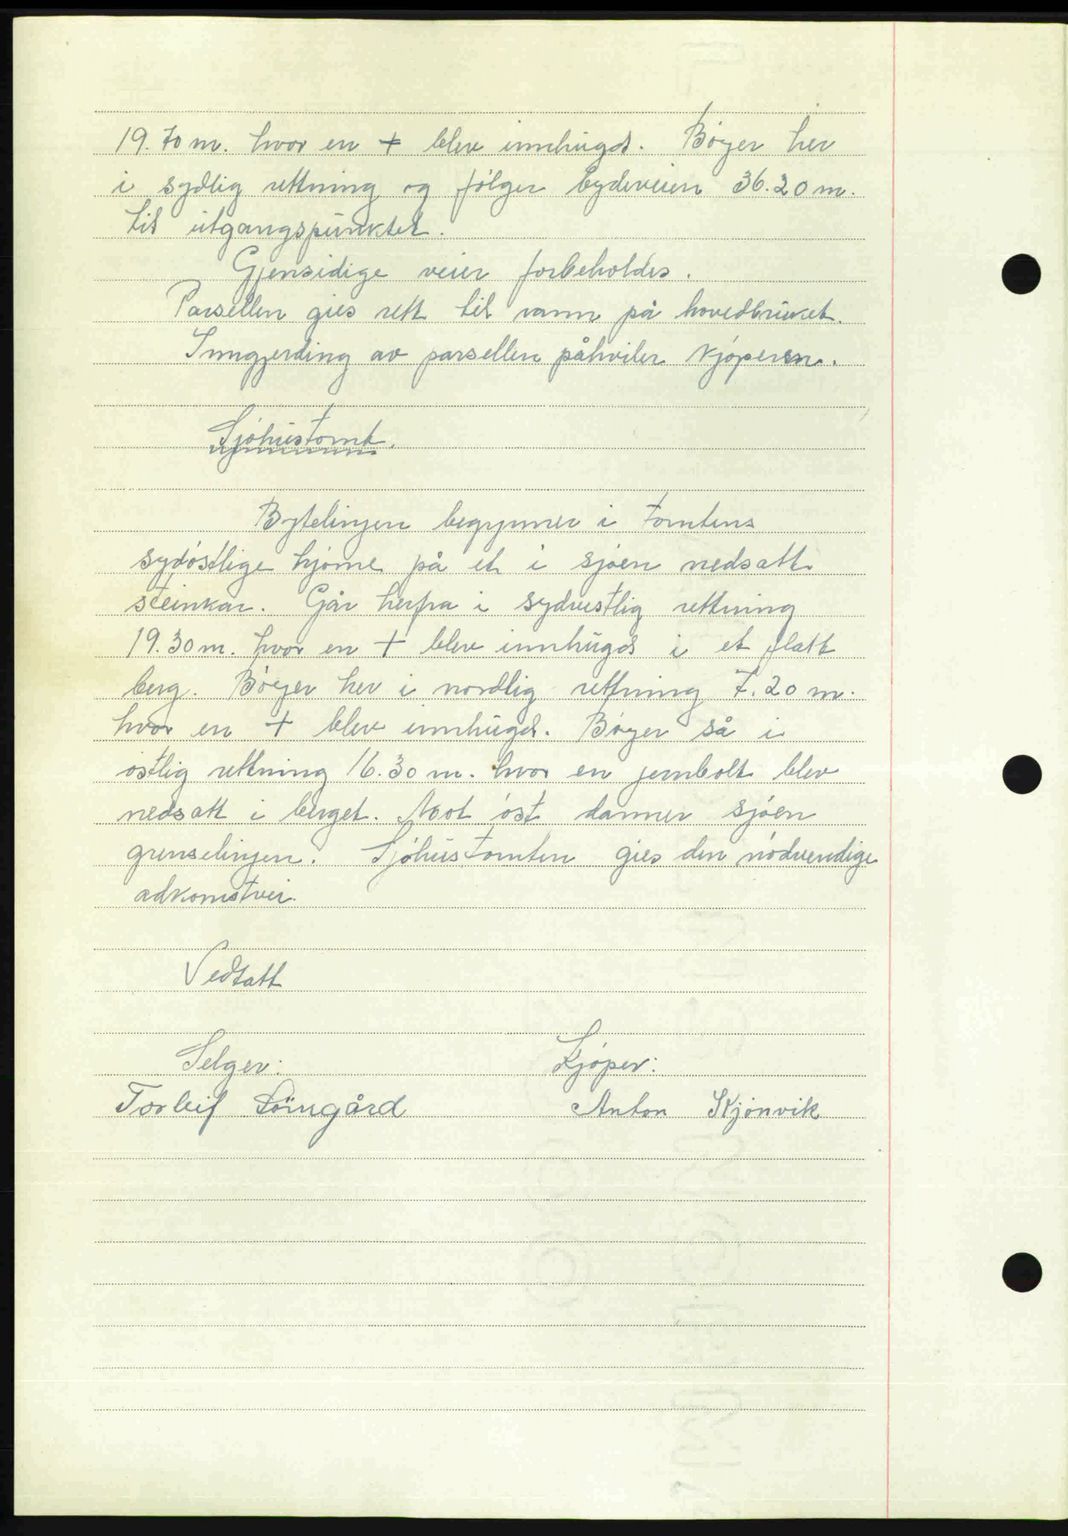 19.70 m. hvor en + blev innhugd. Bøyer her
i sydlig rettning og følger bydeveien 36.20 m.
til utgangspunktet.
Gjensidige veier forbeholdes.
Parsellen gies rett til vann på hovedbruket.
Inngjerding av parsellen påhviler kjøperen.
Sjøhustomt.
Bytelinjen begynner i tomtens
sydøstlige hjørne på et i sjøen nedsatt
steinkar. Går herfra i sydvestlig rettning
19.30 m. hvor en + blev innhugd i et flatt
berg. Bøyer her i nordlig rettning 7.20 m.
hvor en + blev innhugd. Bøyer så i
østlig rettning 16.30 m. hvor en jernbolt blev
nedsatt i berget. Mot øst danner sjøen
grenselinjen. Sjøhustomten gies den nødvendige
adkomstvei.
Vedtatt
Selger: Kjøper:
Torleif Anton Skjønvik